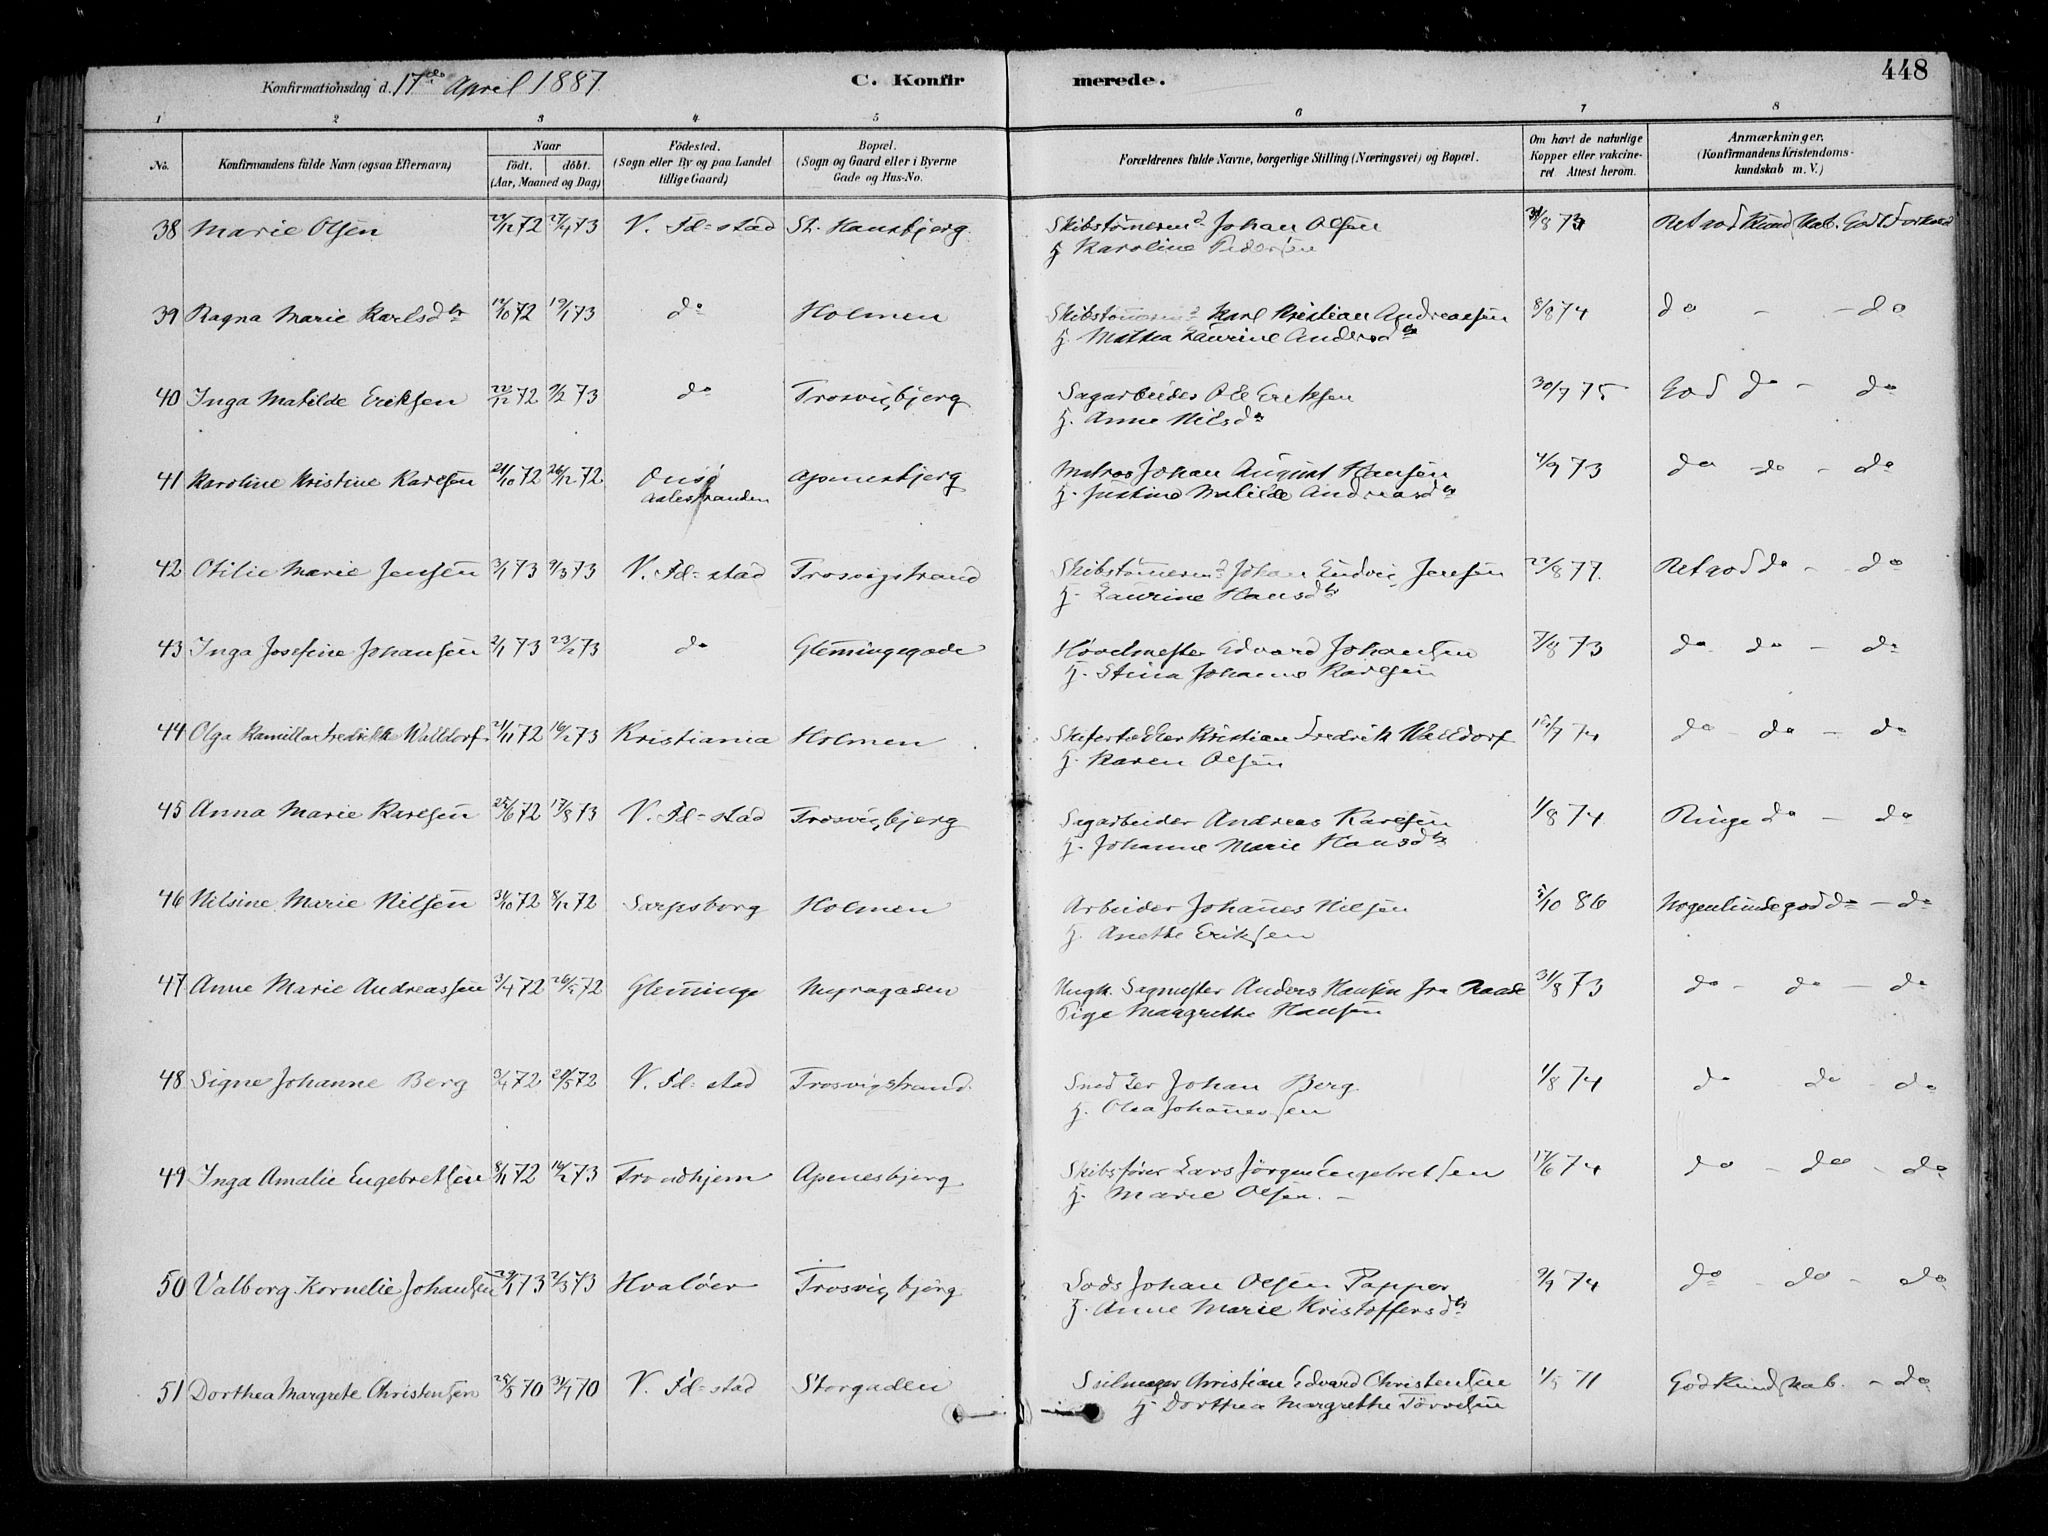 448
Konfirmationsdag d. 17de April 1887
C. Konfirmerede.
1 2 3 4 5 6 7 8
No. Konfirmandens fulde Navn (ogsaa Efternavn) Naar Födt. döbt. (Aar, Maaned og Dag) Födested. (Sogn eller By og paa Landet tillige Gaard) Bopæl. (Sogn og Gaard eller i Byerne Gade og Hus-No. Forældrenes fulde Navne, borgerlige Stilling (Næringsvei) og Bopæl. Om havt de naturlige Kopper eller vakcineret Attest herom. Anmærkninger. (Konfirmandens Kristendomskundskab m.V.)
38 Marie Olsen 72 27/4 73 V. Fd=stad St. Hansbjerg Skibstømmermd Johan Olsen 31/8 73 Ret god Kundskab. Godt Forhold
H Karoline Pedersen
39 Ragna Marie Karlsdtr 72 19/1 73 do Holmen Skibstømmermd Karl Kristian Andreasen 8/8 74 do - - do
H. Mathea Laurine Andersdtr
40 Inga Matilde Eriksen 22/12 72 9/2 73 do Trosvigbjerg Sagarbeider Ole Eriksen 30/7 75 God do - do
H. Anne Nilsdr
41 Karoline Kristine Karlsen 21/10 72 26/12 72 Onsø Apenesbjerg Matros Johan August Hansen 4/9 73 do - do - do
Aalestranden H. Justine Matilde Andreasdtr
42 Otilie Marie Jensen 3/1 73 9/3 73 V. Fd=stad Trosvigstrand Skibstømmermd Johan Ludvig Jensen 22/8 77. Ret god do - do
H. Laurine Hansdtr
43 Inga Josefine Johansen 2/1 73 23/2 73 do Glemmingegade Høvelmester Edvard Johansen 7/8 73 do do - do
H. Stina Johanne Karlsen
44 Olga Kamilla Fredrikke Walldorf 21/11 72 16/2 73 Kristiania Holmen Skifertækker Kristian Fredrik Walldorf 15/7 74 do - do - do
H. Karen Olsen
45 Anna Marie Karlsen 25/6 72 17/8 73 V. Fd=stad Trosvigbjerg Sagarbeider Andreas Karlsen 1/8 74 Ringe do - do
H. Johanne Marie Hansdtr
46 Nilsine Marie Nilsen 31/10 72 8/12 72 Sarpsborg Holmen Arbeider Johannes Nilsen 5/10 86 Nogenlunde god do - do
H. Anethe Eriksen
47 Anne Marie Andreassen 3/4 72 26/5 72 Glemminge Myragaden Ungk. Sagmester Anders Hansen fra Raade 31/8 73 do - do - do
Pige Margrethe Hansen
48 Signe Johanne Berg 3/4 72 20/5 72 V. Fd=stad Trosvigstrand. Snedker Johan Berg 1/8 74 do do - do
H. Olea Johannessen
49 Inga Amalie Engebretsen 8/11 72 16/2 73 Trondhjem Apenesbjerg Skibsfører Lars Jörgen Engebretsen 17/6 74 do - do - do
H. Marie Olsen. -
50 Valborg Kornelie Johansen 29/1 73 2/3 73 Hvaløer Trosvigbjerg Lods Johan Olsen Papper 9/9 74 do - do - do
H. Anne Marie Kristoffersdtr
51 Dorthea Margrete Christensen 25/5 70 31/7 70 V. Fd=stad Storgaden Seilmager Christian Edvard Christensen 1/5 71 God Kundskab. - do
H. Dorthea Margrethe Torvelsen